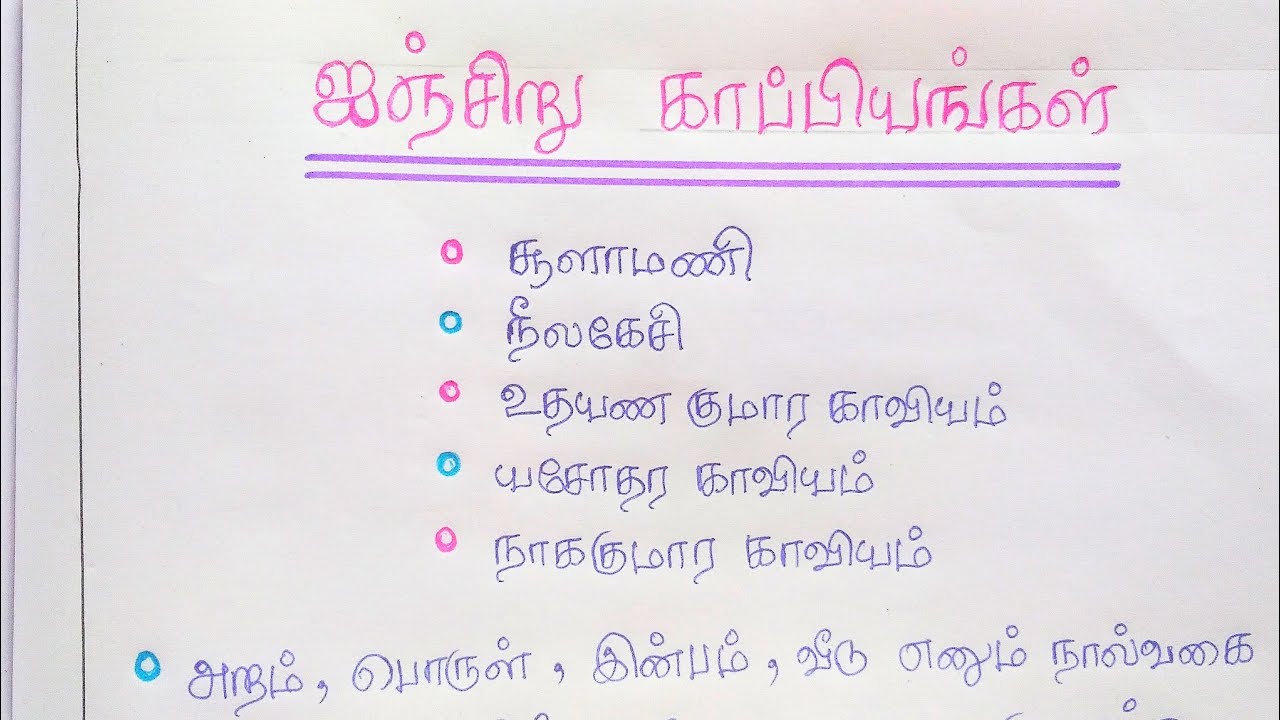 ஐந்சிறு காப்பியங்கள்
சூளாமணி
நீலகேசி
உதயண குமார காவியம்
யசோதர காவியம்
நாககுமார காவியம்
அறம், பொருள், இன்பம், வீடு எனும் நால்வகை